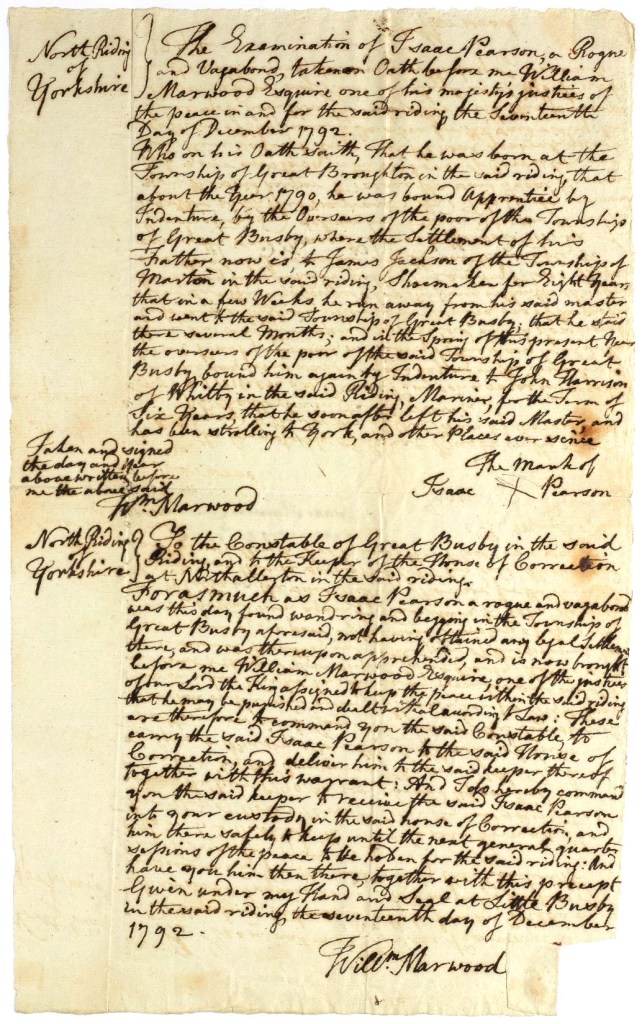 North Riding
of
Yorkshire
The Examination of Isaac Pearson, a Rogue
and Vagabond, taken on Oath before me William
Marwood Esquire one of his majestys justices of
the peace in and for the said riding the Seventeenth
Day of December 1792.
Who on his Oath saith, That he was born at the
Township of Great Broughton in the said riding, that
about the Year 1790, he was bound Apprentice by
Indenture, by the Overseers of the poor of the Township
of Great Busby, where the Settlement of his
Father now is, to James Jackson of the Township of
Marton in the said riding, Shoemaker for Eight Years
that in a few Weeks he run away from his said master
and went to the said Township of Great Busby; that he staid
there several Months; and in the Spring of this present Year
the overseers of the poor of the said Township of Great
Busby bound him again by Indenture to John Harrison
of Whitby in the said Riding, Mariner, for the Term of
Six Years, that he soon after left his said Master, and
has been strolling to York, and other Places ever since
Taken and signed
the day and year
above written, before
me the above said
Wm Marwood
The Mark of
Isaac X Pearson
North Riding
of
Yorkshire
To the Constable of Great Busby in the said
Riding, and to the Keeper of the House of Correction
at Nothallerton in the said riding.
Forasmuch as Isaac Pearson a rogue and vagabond
was this day found wandring and begging in the Township of
Great Busby aforesaid, not having obtained any legal Settlemt
there, and was thereupon apprehended, and is now brought
before me William Marwood Esquire, one of the justices
of our Lord the King assigned to keep the peace within the said riding
that he may be punished and dealt with according to Law: These
are therefore to command you the said Constable, to
carry the said Isaac Pearson to the said House of
Correction, and deliver him to the said keeper thereof
together with this warrant: And I do hereby command
you the said keeper to receive the said Isaac Pearson
into your custody in the said house of Correction, and
him there safely to keep until the next general quarter
sessions of the peace to be hoben for the said riding: And
have you him then there, together with this precept
Givin under my Hand and Seal at Little Busby
in the said riding, the seventeenth day of December
1792.
Willm Marwood